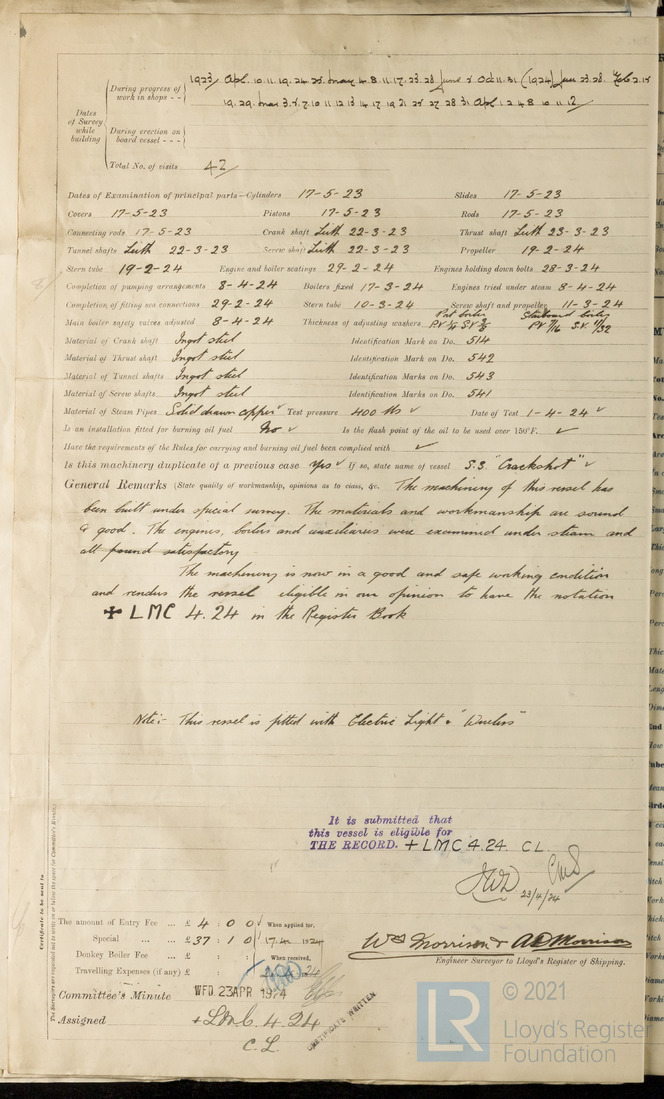 1923/ Apl. 10. 11. 19. 24. 25. May 4. 8. 11. 17. 23. 28 June 2 Oct 11. 31 (1924) Jan 23. 28. Feb 2. 15
During progress of work in shops - -
19. 29. Mar 3. 5. 7. 10 11 12 13 14 17 19 21 25 27 28 31 Apl 1 2 4 8 10 11 12/
Dates of Survey while building
During erection on board vessel - - -
Total No. of visits 42/
Dates of Examination of principal parts—Cylinders 17-5-23 Slides 17-5-23
Covers 17-5-23 Pistons 17-5-23 Rods 17-5-23
Connecting rods 17-5-23 Crank shaft Leith 22-3-23 Thrust shaft Leith 23-3-23
Tunnel shafts Leith 22-3-23 Screw shaft Leith 22-3-23 Propeller 19-2-24
Stern tube 19-2-24 Engine and boiler seatings 29-2-24 Engines holding down bolts 28-3-24
Completion of pumping arrangements 8-4-24 Boilers fixed 17-3-24 Engines tried under steam 8-4-24
Completion of fitting sea connections 29-2-24 Stern tube 10-3-24 Screw shaft and propeller 11-3-24
Main boiler safety valves adjusted 8-4-24 Thickness of adjusting washers Port boiler Starboard boiler P.V. 7/16 S.V. 11/32
Material of Crank shaft Ingot steel Identification Mark on Do. 514
Material of Thrust shaft Ingot steel Identification Mark on Do. 542
Material of Tunnel shafts Ingot steel Identification Marks on Do. 543
Material of Screw shafts Ingot steel Identification Marks on Do. 541
Material of Steam Pipes Solid drawn copper ✓ Test pressure 400 lbs ✓ Date of Test 1-4-24 ✓
Is an installation fitted for burning oil fuel No ✓ Is the flash point of the oil to be used over 150°F. ✓
Have the requirements of the Rules for carrying and burning oil fuel been complied with ✓
Is this machinery duplicate of a previous case Yes ✓ If so, state name of vessel S.S. "Crackshot" ✓
General Remarks (State quality of workmanship, opinions as to class, &c. The machinery of this vessel has
been built under special survey. The materials and workmanship are sound
& good. The engines, boilers and auxiliaries were examined under steam and
all found satisfactory
The machinery is now in a good and safe working condition
and renders the vessel eligible in our opinion to have the notation
✠ LMC 4.24 in the Register Book
Note:- This vessel is fitted with Electric Light & "Wireless"
It is submitted that
this vessel is eligible for
THE RECORD. + LMC 4.24. CL.
23/4/24
Certificate to be sent to
The Surveyors are requested not to write on or below the space for Committee's Minute.
The amount of Entry Fee ... £ 4 : 0 : 0 When applied for,
Special ... ... £ 37 : 1 : 0 17.4. 1924
Donkey Boiler Fee ... £ : : When received,
Travelling Expenses (if any) £ : :
Wm Morrison & A D Morrison
Engineer Surveyor to Lloyd's Register of Shipping.
Committee's Minute WED 23 APR 1924
Assigned + LMC. 4.24
C. L.
CERTIFICATE WRITTEN
LR © 2021
Lloyd's Register
Foundation